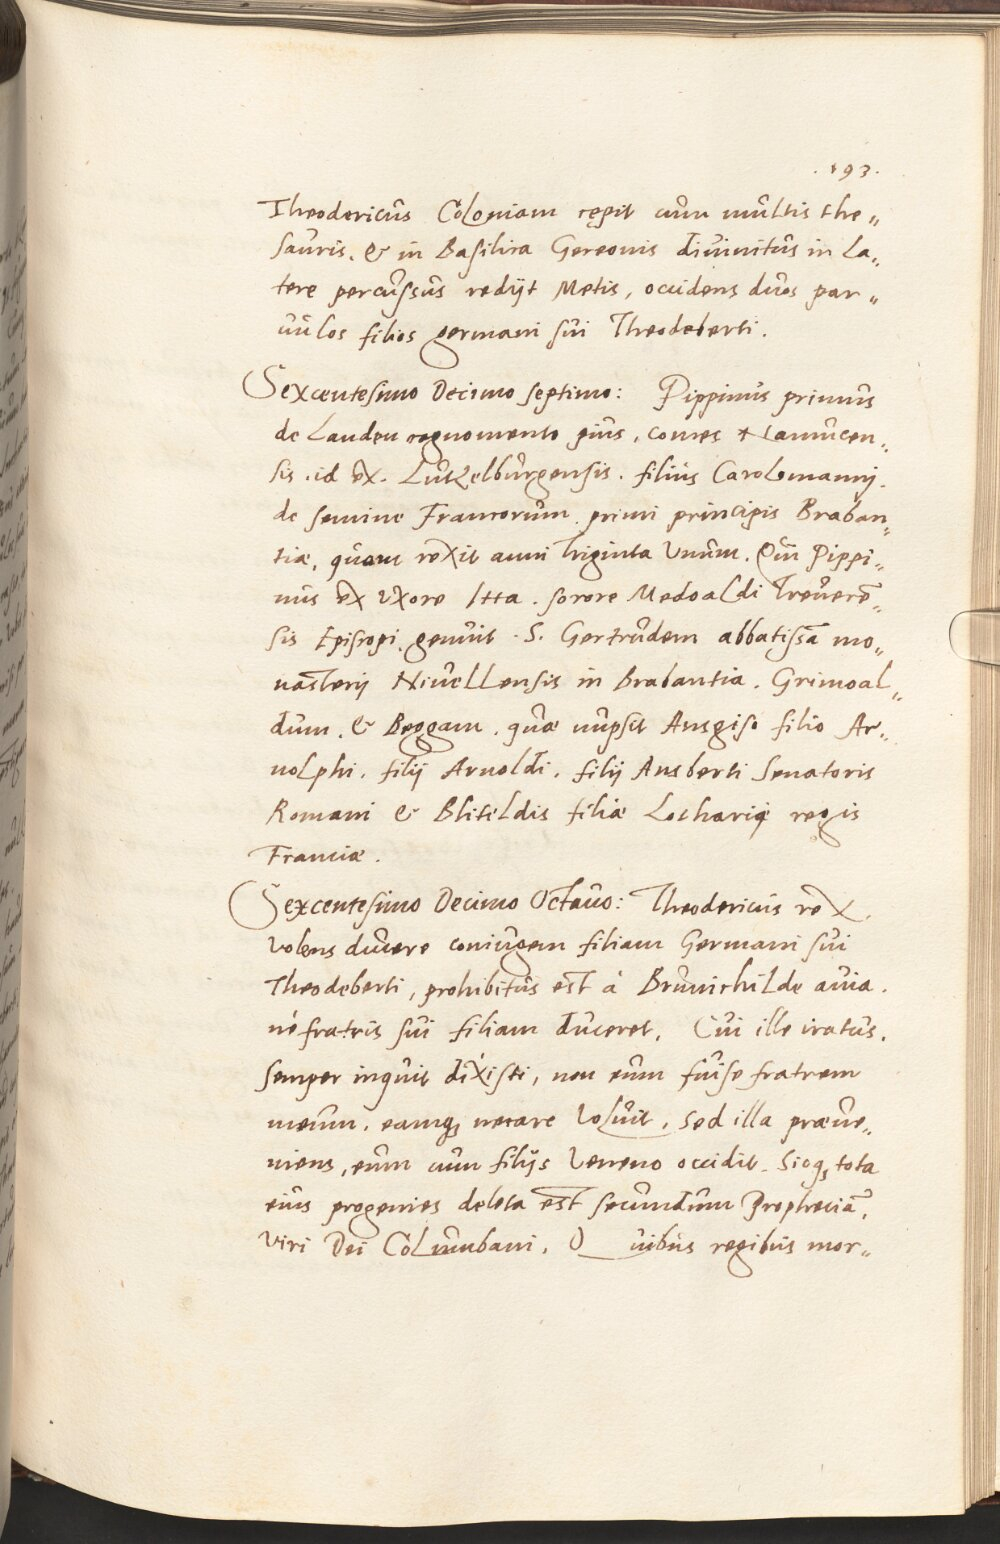 .193.
Theodericus Coloniam cępit cum multis the„
sauris. & in Basilica Gereonis divinitus in la„
tere percussus redijt Metis, occidens duos par„
vulos filios germani sui Theodeberti.
Sexcentesimo Decimo septimo: Pippinus primus
de Landen cognomento eius, comes
sis .id ex. Lutzelburgensis. filius Carolomannj.
de semine Francorum primi principis Braban„
tiæ, quam rexit anni Triginta Unum. Pippi„
nus ex uxore Itta. sorore Medoaldi Treverē„
sis Episcopi genuit .S. Gertrudem abbatissā mo„
nasterij Nivellensis in Brabantia. Grimoal„
dum. & Beggam. quæ nupsit Ansgiso filio Ar„
nolphi. filij Arnoldi. filij Ansberti Senatoris
Romani & Blitildis filiæ Lotharij regis
Franciæ.
Sexcentesimo Decimo Octavo: Theodericus rex.
volens ducere coniugem filiam Germani sui
Theodeberti, prohibitus est à Brunichilde avia.
né fratris sui filiam duceret. Cui ille iratus.
semper inquit dixisti, non eum fuise fratrem
meum. eamq; necare voluit. sed illa præve„
niens, eum cum filijs veneno occidit. Sicq; tota
eius progenies deleta est secundum Propheciā,
viri Dei Columbani. Q uibus regibus mor„